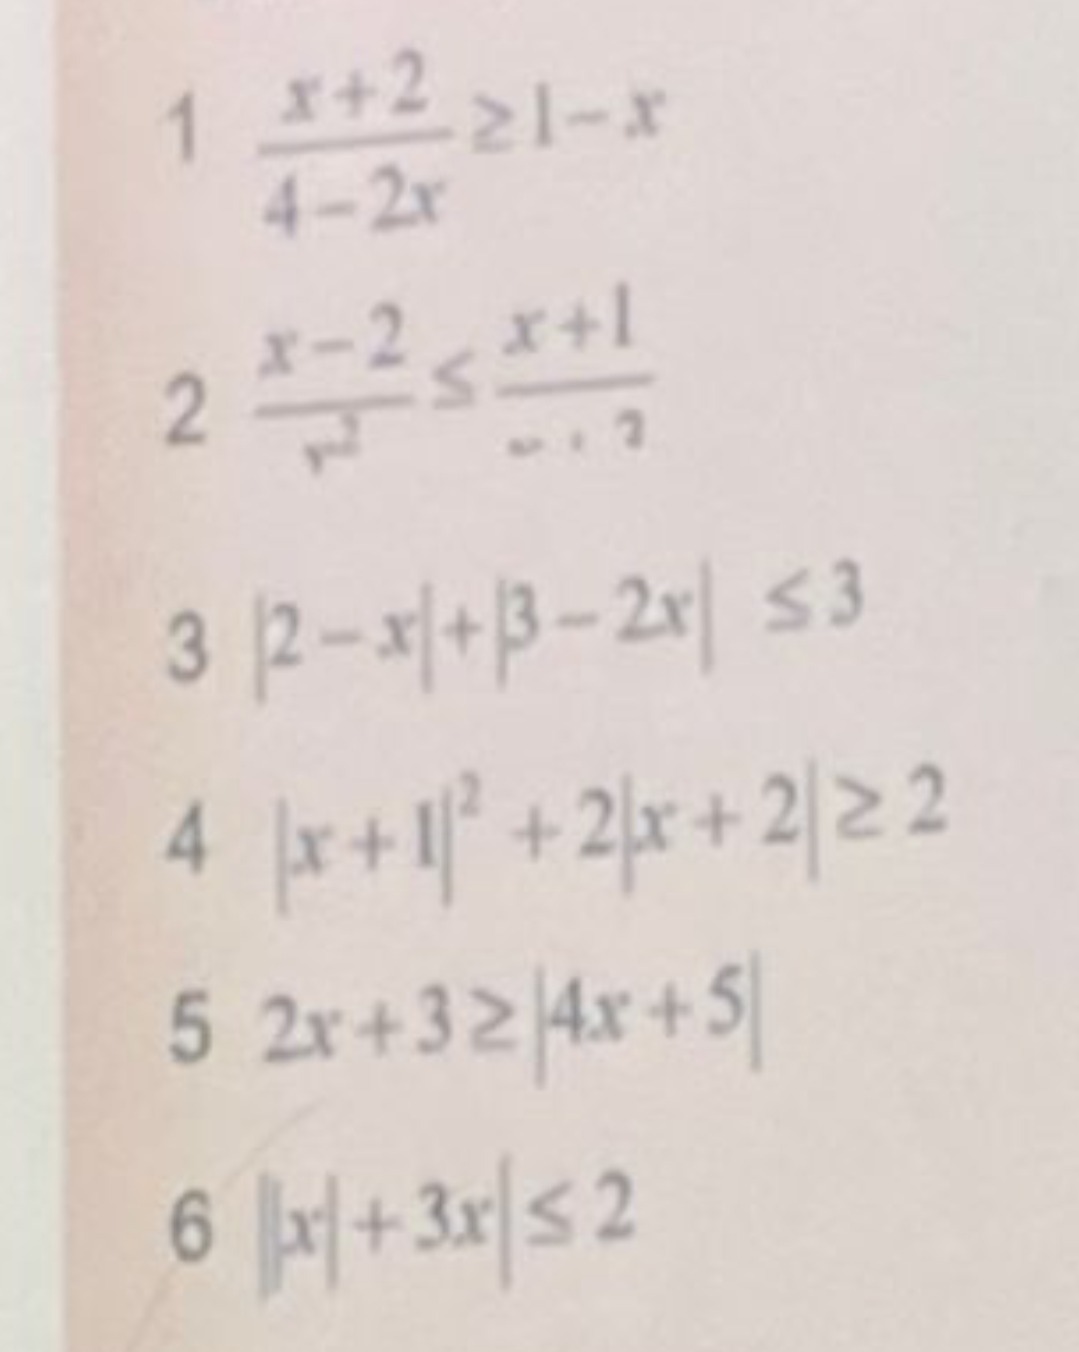 1 (x+2)/(4-2x) ≥ 1-x
2 (x-2)/x² ≤ (x+1)/
3 |2-x|+|3-2x| ≤ 3
4 |x+1|² +2|x+2| ≥ 2
5 2x+3 ≥ |4x+5|
6 ||x|+3x| ≤ 2